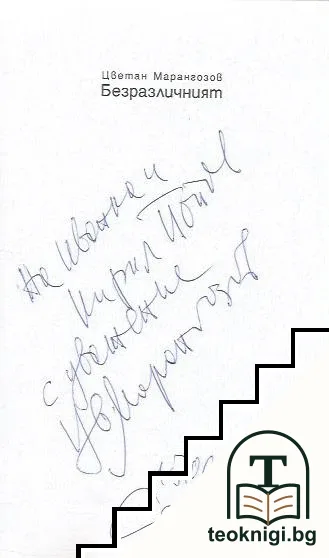 Цветан Марангозов
Безразличният
На Иванка и
Кирил
с уважение
Цв Марангозов
T
teoknigi.bg